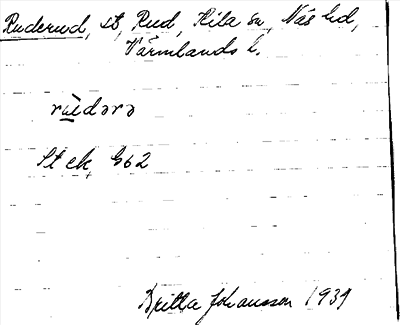 Ruderud, st, Rud, Kila sn, Näs hd,
Värmlands l.
rùdərə
St ek. G62
Britta Johansson 1939